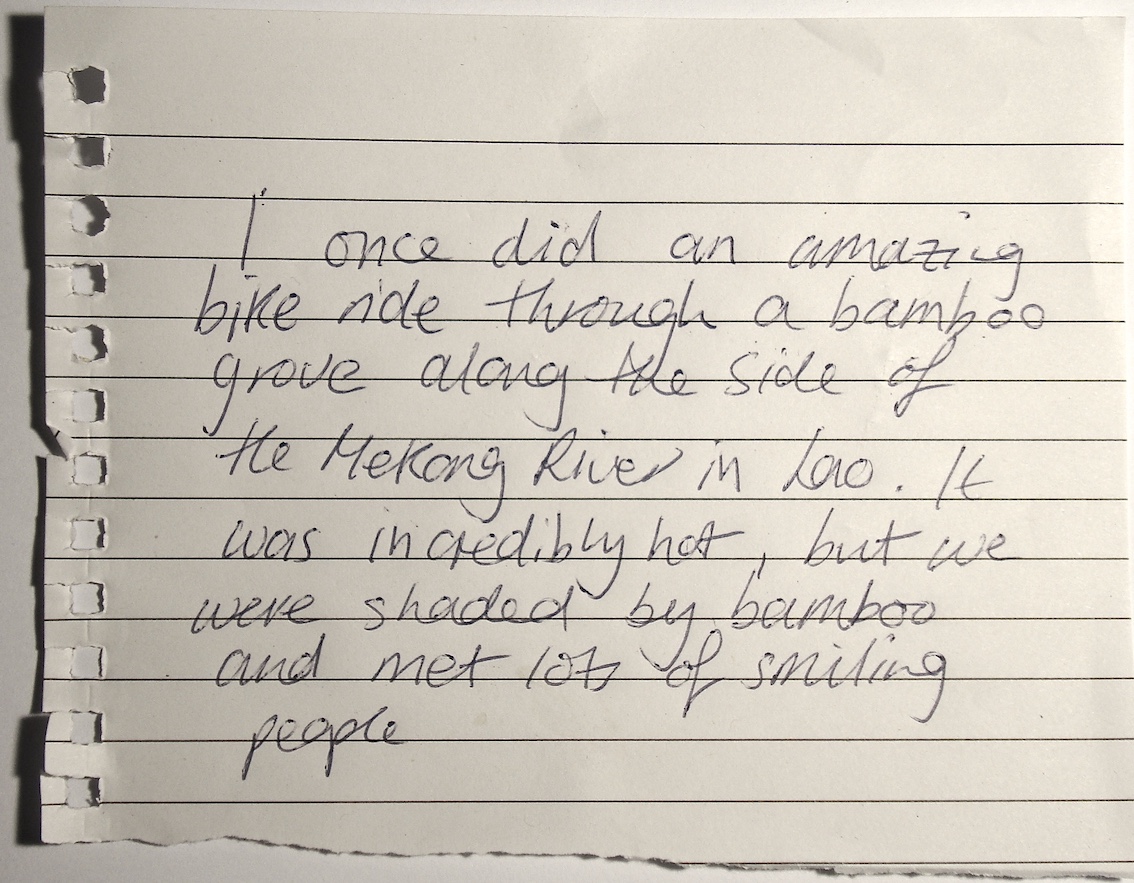 I once did an amazing
bike ride through a bamboo
grove along the side of
the Mekong River in Lao. It
was incredibly hot, but we
were shaded by bamboo
and met lots of smiling
people